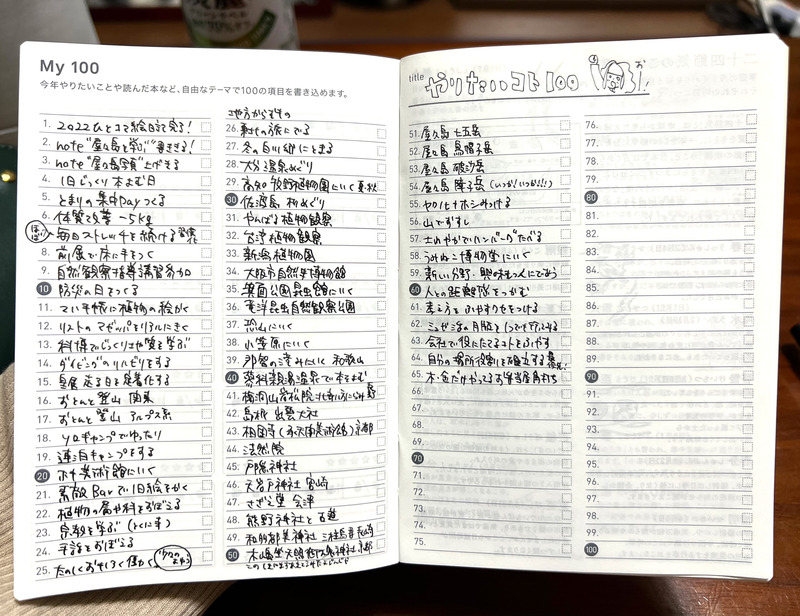 My 100
今年やりたいことや読んだ本など、自由なテーマで100の項目を書き込めます。
1. 2022ひとコマ絵日記で完了!
2. note "屋久島を学ぶ" 書ききる!
3. note "屋久島写真" 上げきる
4. 1日じっくり本よむ日
5. とまりの集中Dayつくる
6. 体質改善 -5kg
毎日ストレッチを続ける 習慣化
8. 前屈で床に手をつく
9. 自然観察指導講習参加
10 防災の日をつくる
11. てい手帳に植物の絵かく
12. リストの マゼッパをリアルにきく
13. 科博でじっくり地質を学ぶ
14. ダイビングのリハビリをする
15. 昼食 走る日を定着化する
16. おとんと登山 関東
17. おとんと登山 アルプス系
18. ソロキャンプでゆったり
19. 連泊キャンプをする
20 ホキ美術館にいく
21. 素敵Barで1日絵をかく
22. 植物の属や科をおぼえる
23. 宗教を学ぶ (とくに寺)
24. 手話をおぼえる
25. たのしくおもしろく働く
26. 船での旅にでる
27. 冬の白川郷にとまる
28. 大分温泉めぐり
29. 高知 牧野植物園にいく 夏・秋
30 佐渡島 杉めぐり
31. やんばる植物観察
32. 台湾植物観察
33. 新潟植物園
34. 大阪市自然史博物館
35. 箕面公園昆虫館にいく
36. 東洋昆虫自然観察公園
37. 恐山にいく
38. 小笠原にいく
39. 那智の滝みたい 和歌山
40 蓼科親湯温泉で本をよむ
41.
42. 島根 出雲大社
43. 相国寺(承天閣美術館)京都
44. 法然院
45. 戸隠神社
46. 天岩戸神社 宮崎
47. さざえ堂 会津
48. 熊野神社と古道
49. 和多都美神社 三柱鳥居 長崎
50 木嶋坐天照御魂神社 京都
title やりたいコト100
51. 屋久島 七五岳
52. 屋久島 烏帽子岳
53. 屋久島 破沙岳
54. 屋久島 障子岳 (いつか!いつか!!!)
55. ヤクノヒナホシみつける
56. 山でおすし
57. さわやかでハンバーグたべる
58. うみねこ博物堂にいく
59. 新しい分野・興味を人にであう
60 人との距離感をつかむ
61. 考え方をふやすクセをつける
62.
63. 会社で役にたてるコトをふやす
64. 自分の場所役割を確立する
65. 木・金だけやってるお弁当屋
66.
67.
68.
69.
70
71.
72.
73.
74.
75.
76.
77.
78.
79.
80
81.
82.
83.
84.
85.
86.
87.
88.
89.
90
91.
92.
93.
94.
95.
96.
97.
98.
99.
100